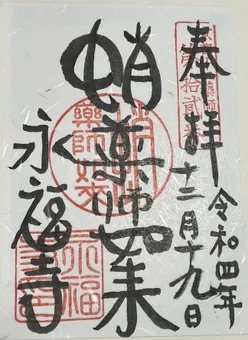 奉拝
令和四年
十二月十九日
蛸薬師如来
永福寺
薬師如来
永福